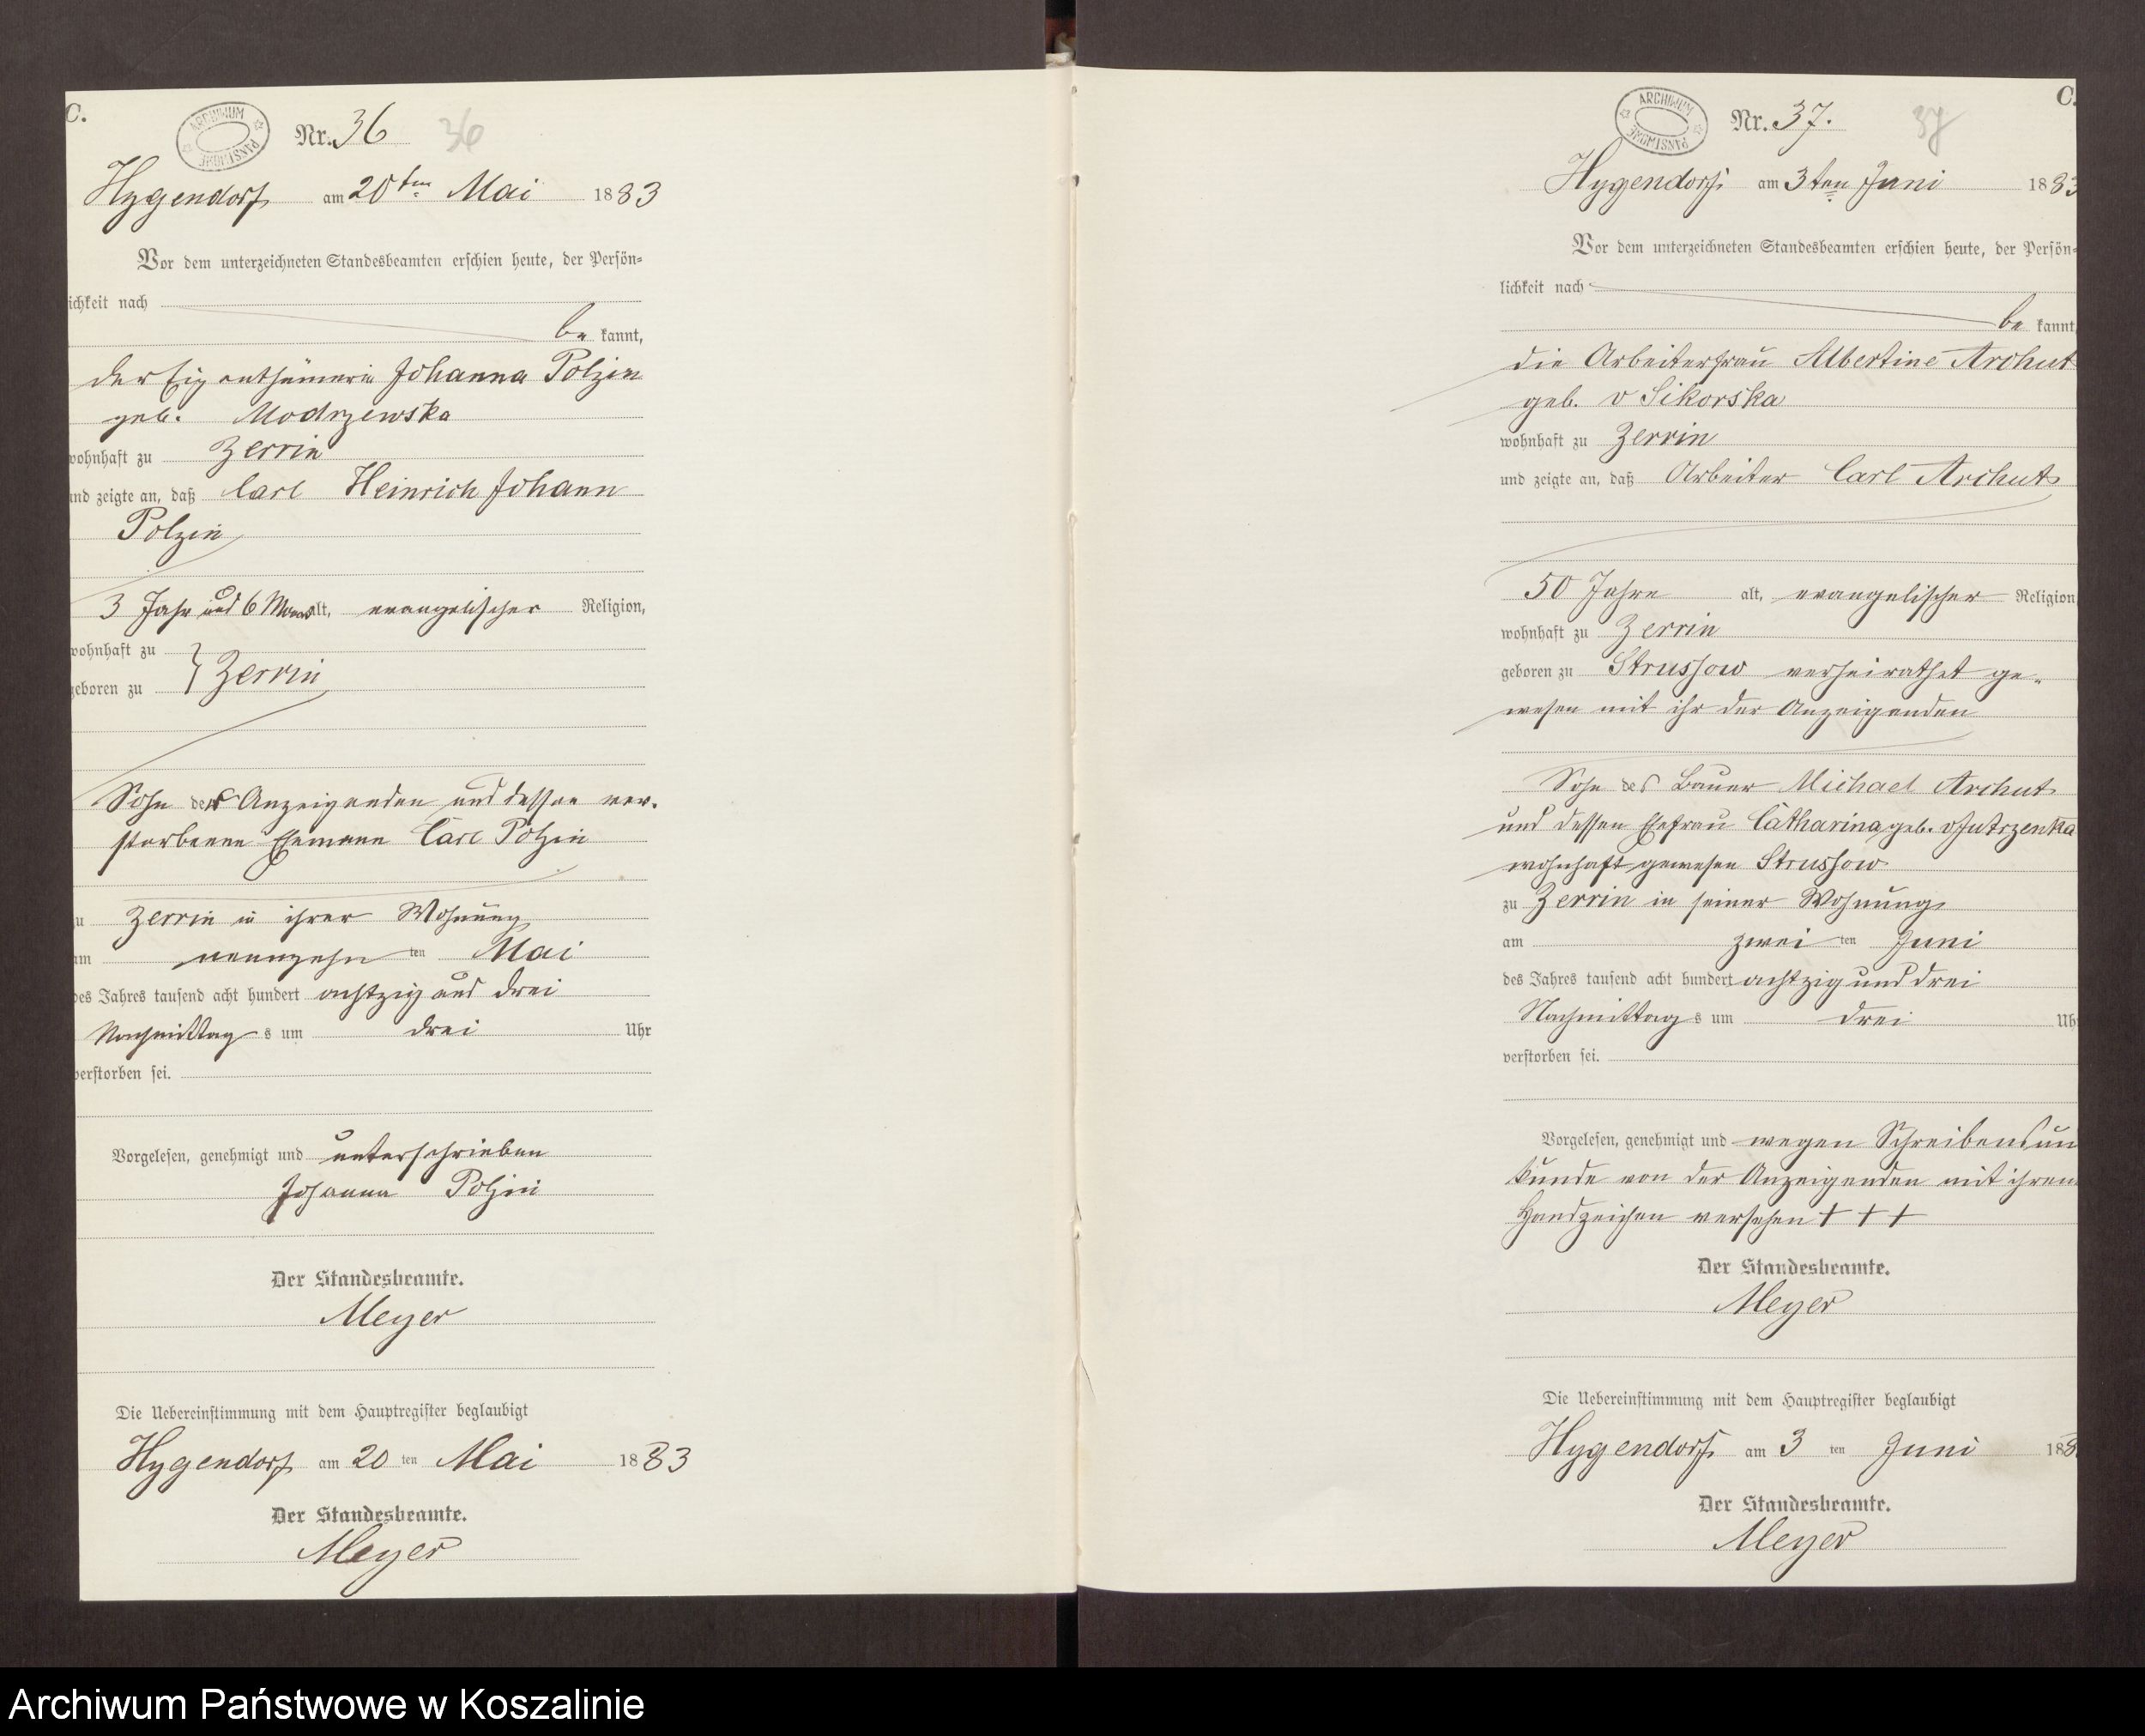 C.
ARCHIWUM PAŃSTWOWE
Nr. 36 36
Hygendorf am 20ten Mai 1883
Vor dem unterzeichneten Standesbeamten erschien heute, der Persön-
ichkeit nach
be kannt,
der Eigenthümerin Johanna Polzin
geb. Modrzewska
wohnhaft zu Zerrin
und zeigte an, daß Carl Heinrich Johann
Polzin
3 Jahr und 6 Monat alt, evangelischer Religion,
wohnhaft zu
geboren zu } Zerrin
Sohn der Anzeigenden und dessen ver-
storbenen Ehemann Carl Polzin
zu Zerrin in ihrer Wohnung
am neunzehn ten Mai
des Jahres tausend acht hundert achtzig und drei
Nachmittag s um drei Uhr
verstorben sei.
Vorgelesen, genehmigt und unterschrieben
Johanna Polzin
Der Standesbeamte.
Meyer
Die Uebereinstimmung mit dem Hauptregister beglaubigt
Hygendorf am 20 ten Mai 1883
Der Standesbeamte.
Meyer
C.
ARCHIWUM PAŃSTWOWE
Nr. 37. 37
Hygendorf am 3ten Juni 1883
Vor dem unterzeichneten Standesbeamten erschien heute, der Persön-
lichkeit nach
be kannt,
die Arbeiterfrau Albertine Archut
geb. v Sikorska
wohnhaft zu Zerrin
und zeigte an, daß Arbeiter Carl Archut
50 Jahre alt, evangelischer Religion
wohnhaft zu Zerrin
geboren zu Strussow verheirathet ge-
wesen mit ihr der Anzeigenden
Sohn des Bauer Michael Archut
und dessen Ehefrau Catharina geb. v Jutrzenka
wohnhaft gewesen Strussow
zu Zerrin in seiner Wohnung
am zwei ten Juni
des Jahres tausend acht hundert achtzig und drei
Nachmittag s um drei Uh
verstorben sei.
Vorgelesen, genehmigt und wegen Schreibensun
kunde von der Anzeigenden mit ihrem
Handzeichen versehen + + +
Der Standesbeamte.
Meyer
Die Uebereinstimmung mit dem Hauptregister beglaubigt
Hygendorf am 3 ten Juni 188
Der Standesbeamte.
Meyer
Archiwum Państwowe w Koszalinie